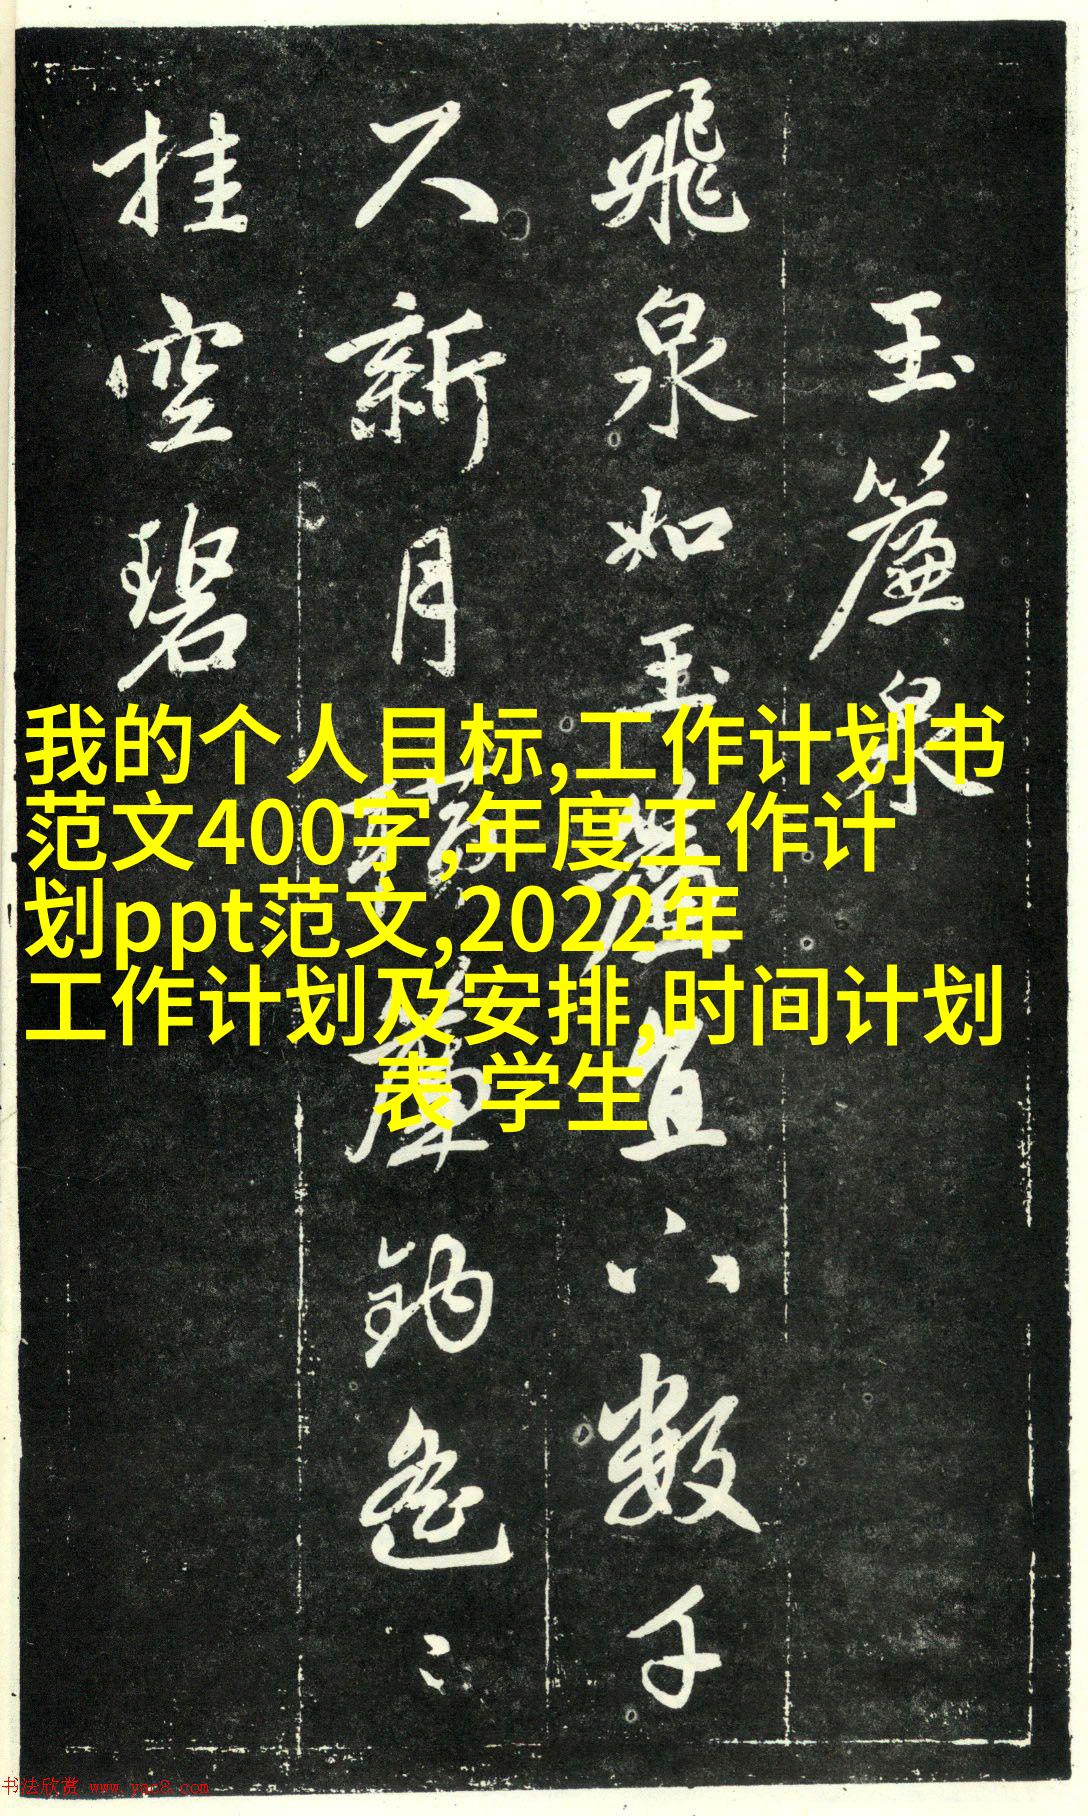 我的个人目标,工作计划书
范文400字,年度工作计
划ppt范文,2022年
工作计划及安排,时间计划
表 学生
玉簾泉
飛泉如玉簾直下數千
尺新月簾鈎遙〻
挂空碧
书法欣赏 www.yac8.com